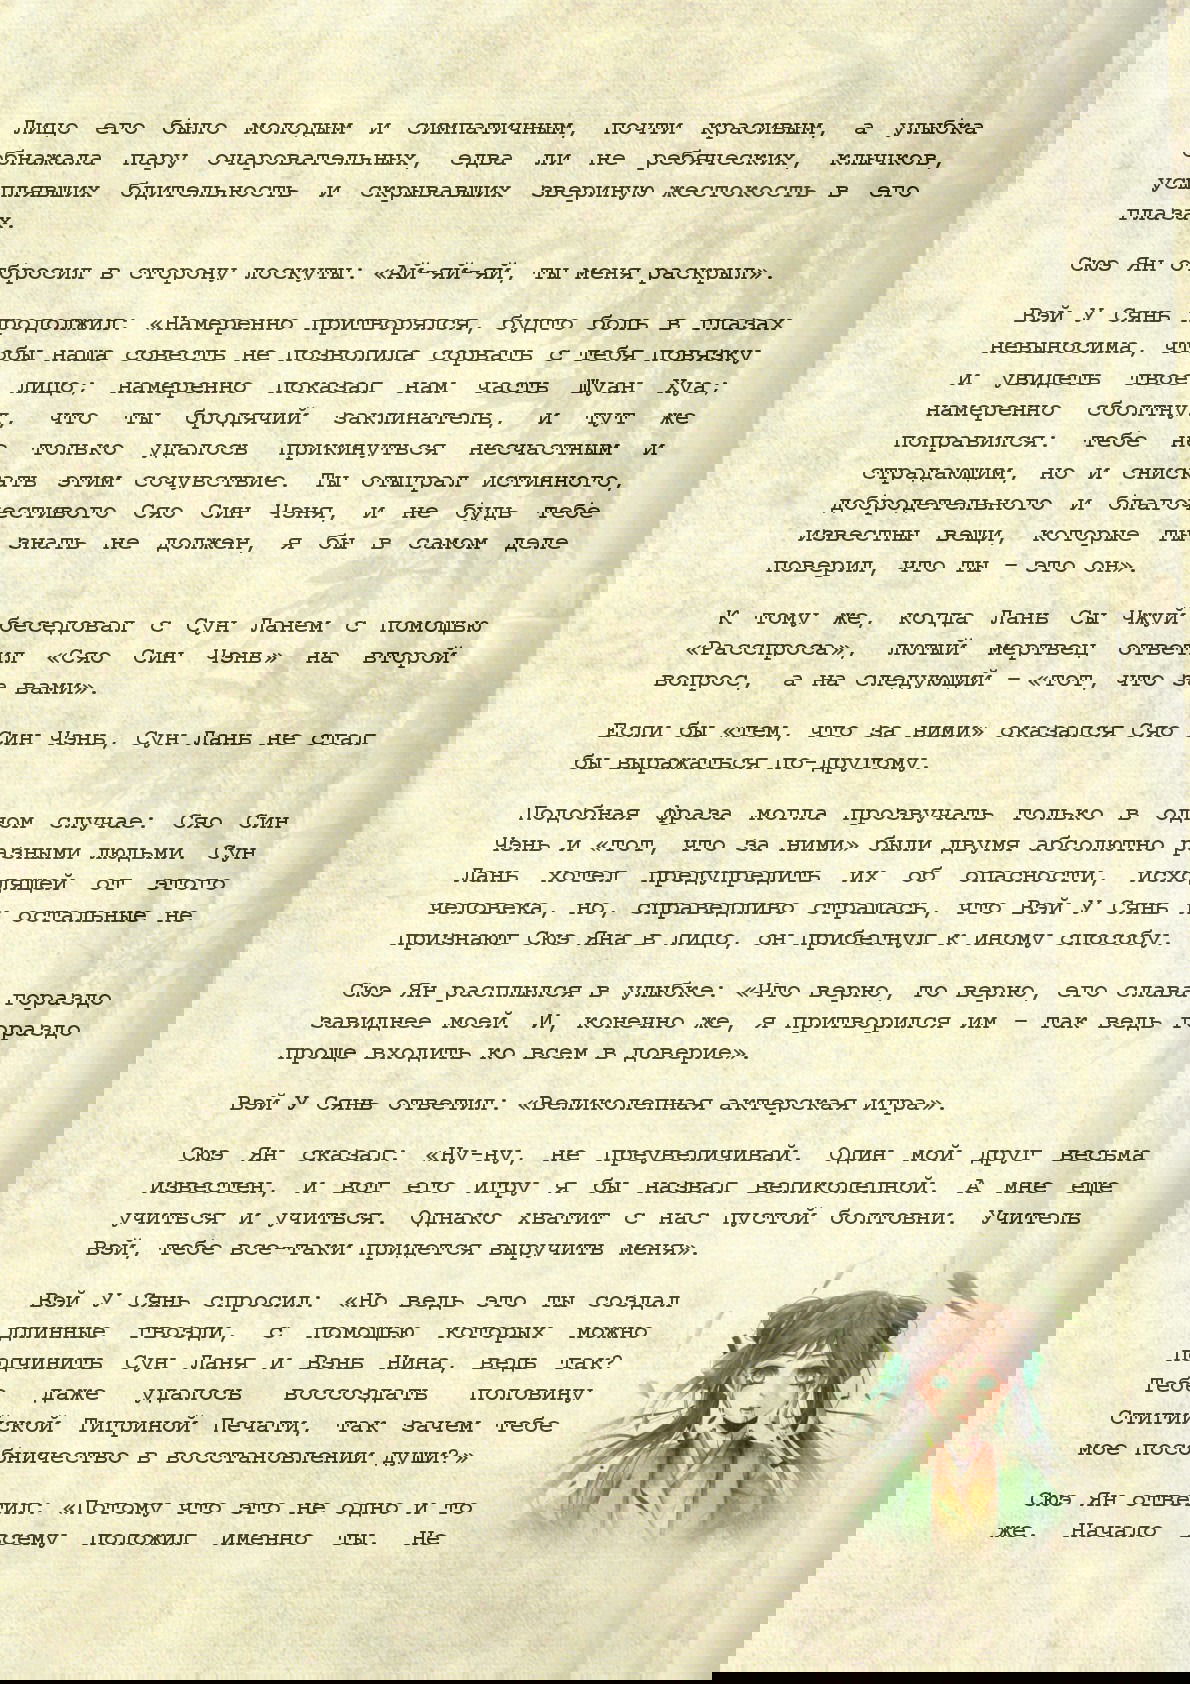 Лицо его было молодым и симпатичным, почти красивым, а улыбка
обнажала пару очаровательных, едва ли не ребяческих, клычков,
усыплявших бдительность и скрывавших звериную жестокость в его
глазах.
Сюэ Ян отбросил в сторону лоскуты: «Ай-яй-яй, ты меня раскрыл».
Вэй У Сянь продолжил: «Намеренно притворялся, будто боль в глазах
невыносима, чтобы наша совесть не позволила сорвать с тебя повязку
и увидеть твое лицо; намеренно показал нам часть Шуан Хуа;
намеренно сболтнул, что ты бродячий заклинатель, и тут же
поправился: тебе не только удалось прикинуться несчастным и
страдающим, но и снискать этим сочувствие. Ты отыграл истинного,
добродетельного и благочестивого Сяо Син Чэня, и не будь тебе
известны вещи, которые ты знать не должен, я бы в самом деле
поверил, что ты – это он».
К тому же, когда Лань Сы Чжуй беседовал с Сун Ланем с помощью
«Расспроса», лютый мертвец ответил «Сяо Син Чэнь» на второй
вопрос, а на следующий – «тот, что за вами».
Если бы «тем, что за ними» оказался Сяо Син Чэнь, Сун Лань не стал
бы выражаться по-другому.
Подобная фраза могла прозвучать только в одном случае: Сяо Син
Чэнь и «тот, что за ними» были двумя абсолютно разными людьми. Сун
Лань хотел предупредить их об опасности, исходящей от этого
человека, но, справедливо страшась, что Вэй У Сянь и остальные не
признают Сюэ Яна в лицо, он прибегнул к иному способу.
Сюэ Ян расплылся в улыбке: «Что верно, то верно, его слава гораздо
завиднее моей. И, конечно же, я притворился им – так ведь гораздо
проще входить ко всем в доверие».
Вэй У Сянь ответил: «Великолепная актерская игра».
Сюэ Ян сказал: «Ну-ну, не преувеличивай. Один мой друг весьма
известен, и вот его игру я бы назвал великолепной. А мне еще
учиться и учиться. Однако хватит с нас пустой болтовни. Учитель
Вэй, тебе все-таки придется выручить меня».
Вэй У Сянь спросил: «Но ведь это ты создал
длинные гвозди, с помощью которых можно
подчинить Сун Ланя и Вэнь Нина, ведь так?
Тебе даже удалось воссоздать половину
Стигийской Тигриной Печати, так зачем тебе
мое пособничество в восстановлении души?»
Сюэ Ян ответил: «Потому что это не одно и то
же. Начало всему положил именно ты. Не